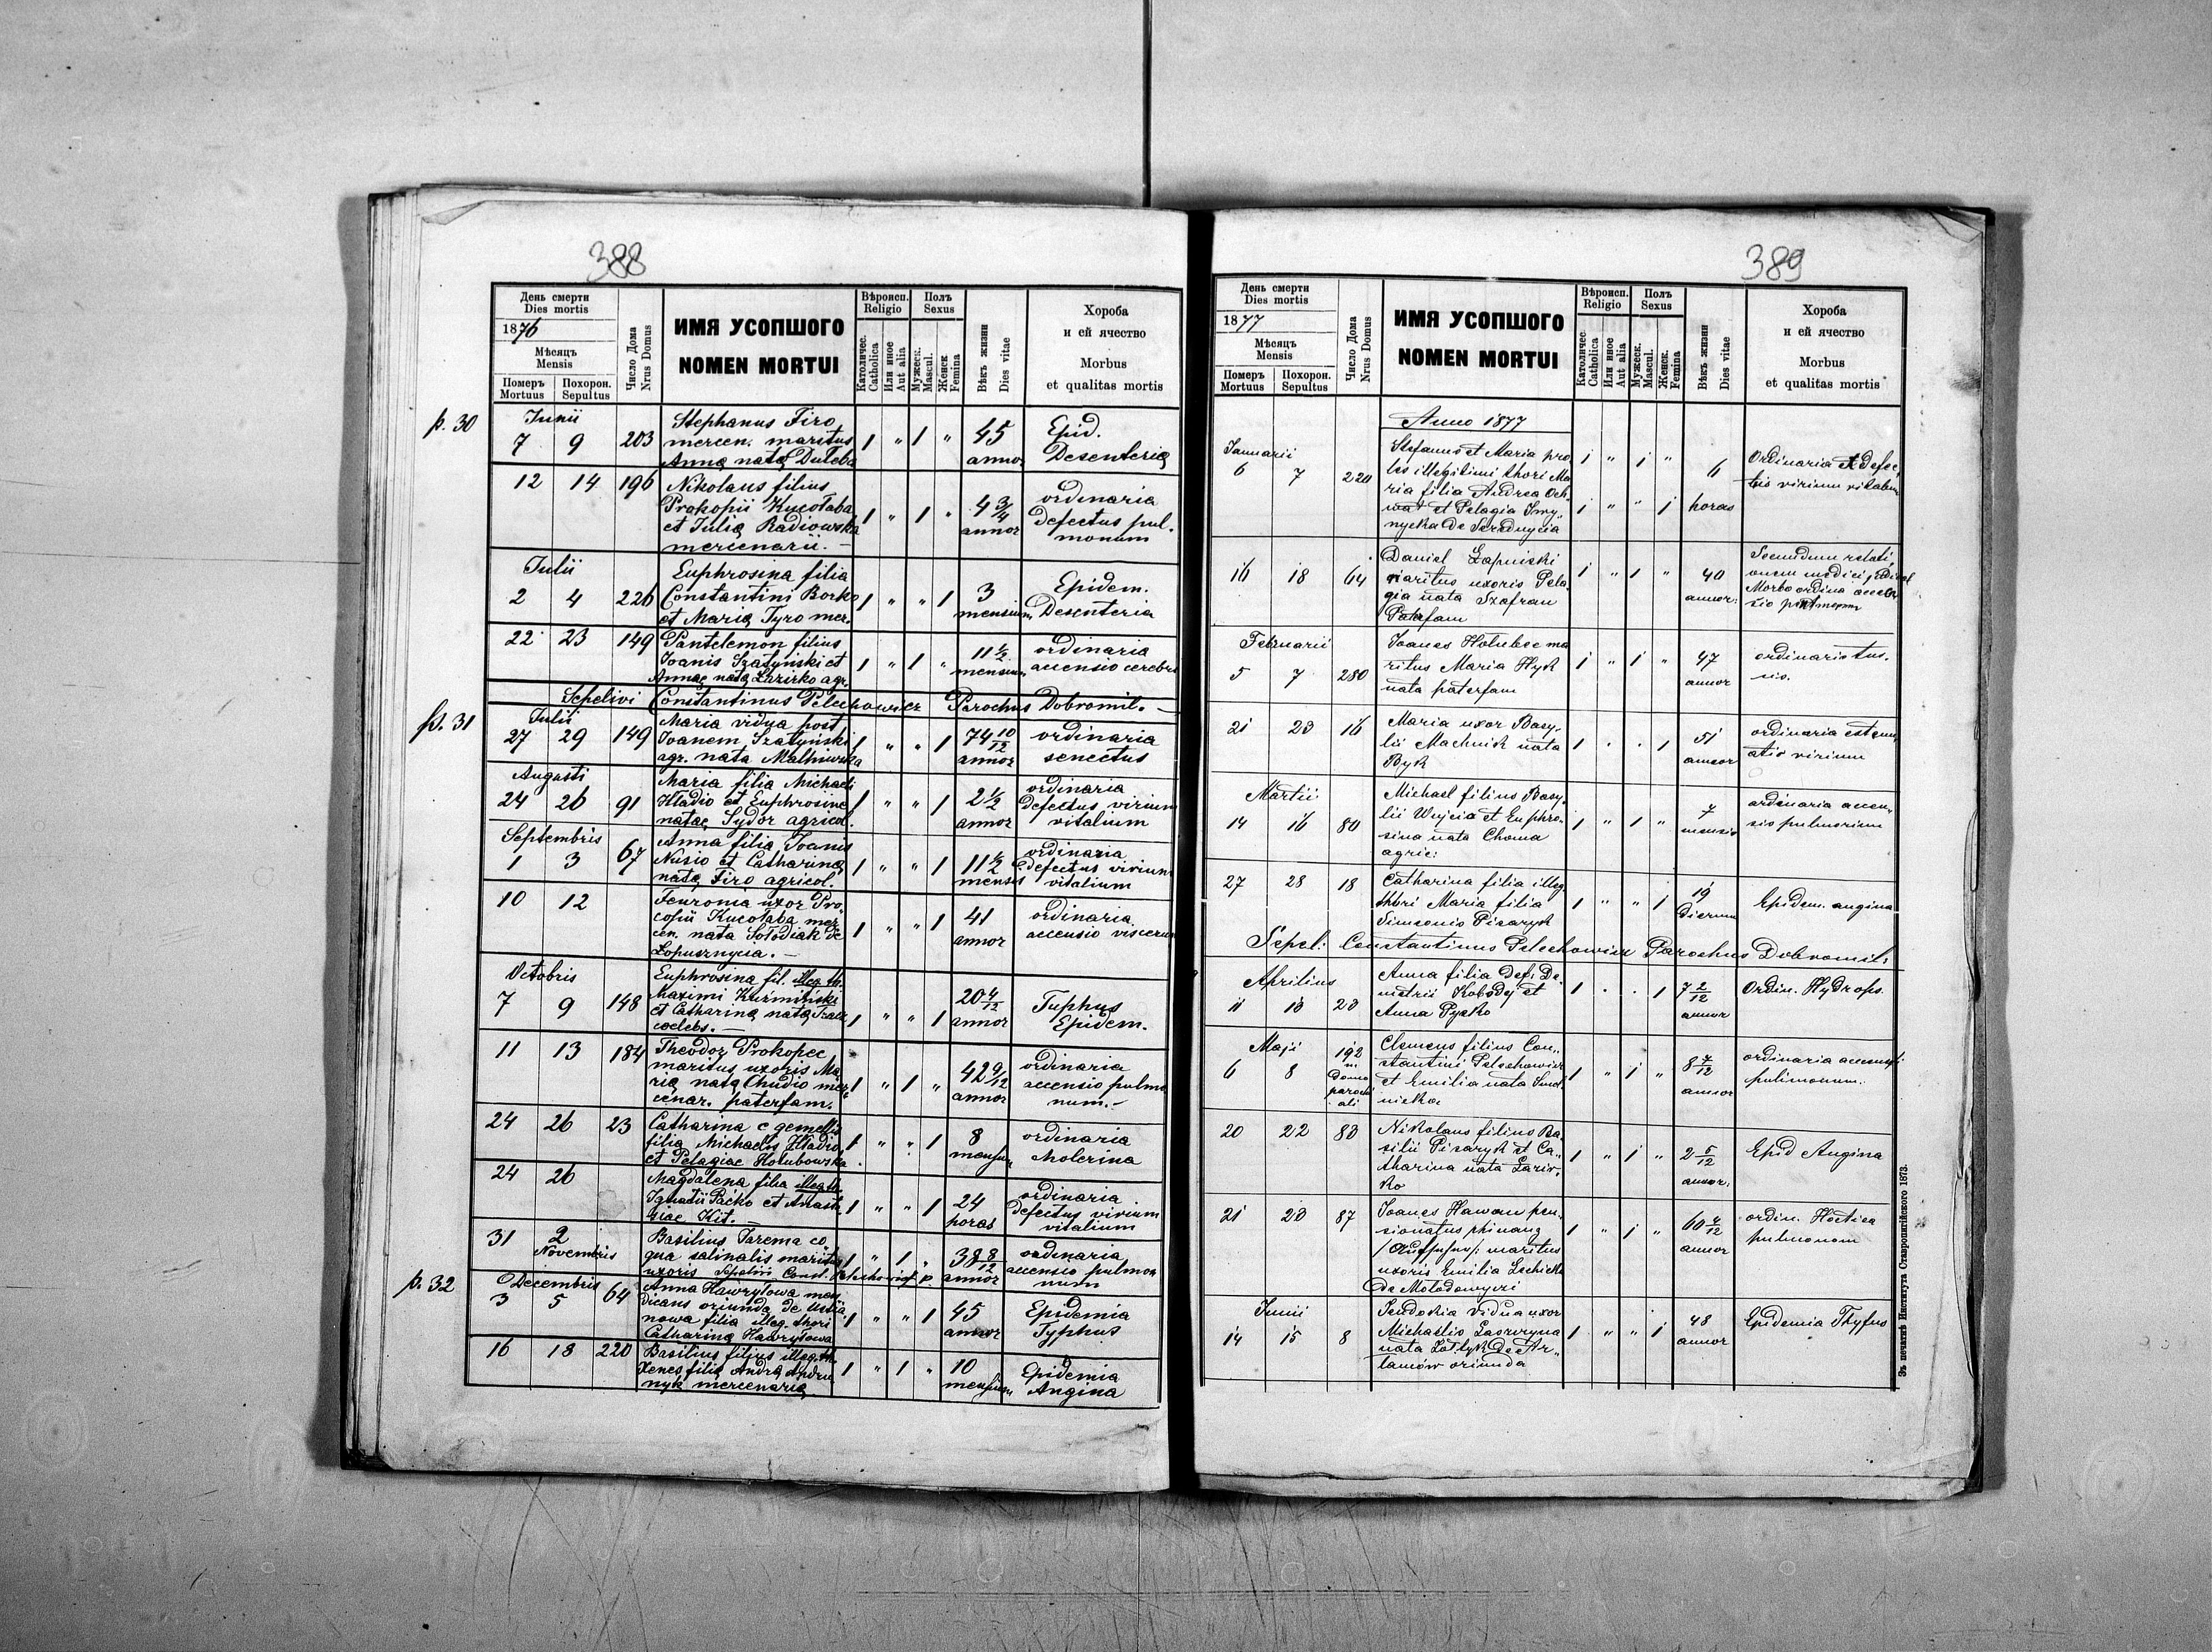 388
День смерти
Dies mortis
1876
Мѣсяцъ
Mensis
Померъ Похорон.
Mortuus Sepultus
Число Дома
Nrus Domus
ИМЯ УСОПШОГО
NOMEN MORTUI
Вѣроисп.
Religio
Католичес.
Catholica
Или иное
Aut alia
Полъ
Sexus
Мужеск.
Mascul.
Женск.
Femina
Вѣкъ жизни
Dies vitae
Хороба
и ей ячество
Morbus
et qualitas mortis
p. 30
Junii
7 9 203
Stephanus Firo
mercen. maritus
Anna nata Duleba
1 " 1 "
45
annor
Epid.
Desenteria
12 14 196
Nikolaus filius
Prokopii Kucołaba
et Julia Radiowska
mercenarii. —
1 " 1 "
4 3/4
annor
ordinaria
defectus pul-
monum
Julii
2 4 226
Euphrosina filia
Constantini Borko
et Maria Tyro mer.
1 " " 1
3
mensium
Epidem.
Desenteria
22 23 149
Pantelemon filius
Joanis Szatyński et
Annae nata Łazirko agr.
1 " 1 "
11 1/2
mensium
ordinaria
accensio cerebri
Sepelivi Constantinus Pelechowicz Parochus Dobromil. —
p. 31
Julii
27 29 149
Maria vidua post
Joanem Szatyński
agr. nata Malniwska
1 " " 1
74 10/12
annor
ordinaria
senectus
Augusti
24 26 91
Maria filia Michaeli
Hładio et Euphrosina
natae Sydor agricol.
1 " " 1
2 1/2
annor
ordinaria
defectus virium
vitalium
Septembris
1 3 67
Anna filia Joanis
Nusio et Catharina
nata Firo agricol.
1 " " 1
11 1/2
mensis
ordinaria
defectus virium
vitalium
10 12
Fenronia uxor Pro-
copii Kucołaba mer-
cen. nata Sołodiak de
Łopusznycia. —
1 " " 1
41
annor
ordinaria
accensio viscerum
Octobris
7 9 148
Euphrosina fil. illeg. th.
Maximi Kuźmiński
et Catharina nata
coelebs. —
1 " " 1
20 4/12
annor
Tuphus
Epidem.
11 13 184
Theodor Prokopec
maritus uxoris Ma-
ria nata Chudio mer-
cenar. paterfam.
1 " 1 "
42 9/12
annor
ordinaria
accensio pulmo
num. —
24 26 23
Catharina c gemellis
filia Michaelis Hładio
et Pelagiae Hołubowska
1 " " 1
8
mensium
ordinaria
cholerina
24 26
Magdalena filia illeg. th.
Ignatii Paćko et Anast-
siae Kit. —
1 " " 1
24
horas
ordinaria
defectus virium
vitalium
31 2
Novembris
Basilius Jarema co-
qua salinalis maritus
uxoris Sepelivi Const. Pelechowicz p.
1 " 1 "
38 8/12
annor
ordinaria
accensio pulmo
num
p. 32
Decembris
3 5 64
Anna Hawryłowa men-
dicans oriunda de Ustia-
nowa filia illeg. thori
Catharina Hawryłowa
1 " " 1
45
annor
Epidemia
Typhus
16 18 220
Basilius filius illeg. th.
Xenes filia Andrea Andru-
nyk mercenaria
1 " 1 "
10
mensium
Epidemia
Angina
389
День смерти
Dies mortis
1877
Мѣсяцъ
Mensis
Померъ Похорон.
Mortuus Sepultus
Число Дома
Nrus Domus
ИМЯ УСОПШОГО
NOMEN MORTUI
Вѣроисп.
Religio
Католичес
Catholica
Или иное
Aut alia
Полъ
Sexus
Мужеск.
Mascul.
Женск.
Femina
Вѣкъ жизни
Dies vitae
Хороба
и ей ячество
Morbus
et qualitas mortis
Anno 1877
Januarii
6 7 220
Stefanus et Maria pro-
les illegitimi thori Ma-
ria filia Andrea Och-
wat et Pelagia
de Serednycia
1 " 1 "
1 " " 1
6
horas
Ordinaria et defec-
tus virium vitalium
16 18 64
Daniel Łapniski
maritus uxoris Pela-
gia nata Szafran
Paterfam
1 " 1 "
40
annor.
Secundum relati-
onem medici
Morbo ordina accen-
sio
Februarii
5 7 280
Joanes Holubec ma
ritus Maria Hyk
nata paterfam
1 " 1 "
47
annor
ordinario tus-
sis.
21 23 16
Maria uxor Basy-
lii Machnik nata
Byk
1 . . 1
51
annor
ordinaria extenu-
atio virium
Martii
14 16 80
Michael filius Basy-
lii Wujcia et Euphro-
sina nata Choma
agric:
1 " 1 "
7
mensis
ordinaria accen-
sio pulmonum
27 28 18
Catharina filia illeg.
thori Maria filia
Simeonis Pisaryk
1 " " 1
19
dierum
Epidem. angina
Sepel: Constantinus Pelechowicz Parochus Dobromil:
Aprilius
11 13 23
Anna filia Def: De-
metrii Kobody et
Anna Pyrko
1 . . 1
7 2/12
annor
Ordin. Hydrops.
Maji
6 8
192
in
domo
parochi
ali
Clemens filius Con-
stantini Pelechowicz
et Emilia nata
1 " 1 "
8 7/12
annor
ordinaria accensi
pulmonum.
20 22 83
Nikolaus filius Ba-
silii Pisaryk et Ca-
tharina nata Łazir-
ko
1 " 1 "
2 5/12
annor.
Epid Angina
21 23 87
Joanes Hawan pen-
sionatus phinanz
maritus
uxoris Emilia
de Mołodowyczi
1 " 1 "
60 4/12
annor
ordin. Hectica
pulmonom
Junii
14 15 8
Eudokia vidua uxor
Michaelis Ławryna
nata Kotłyk De Ar-
lamów oriunda
1 " " 1
48
annor
Epidemia Thyfus
Зъ печатнѣ Института Ставропигійского 1873.